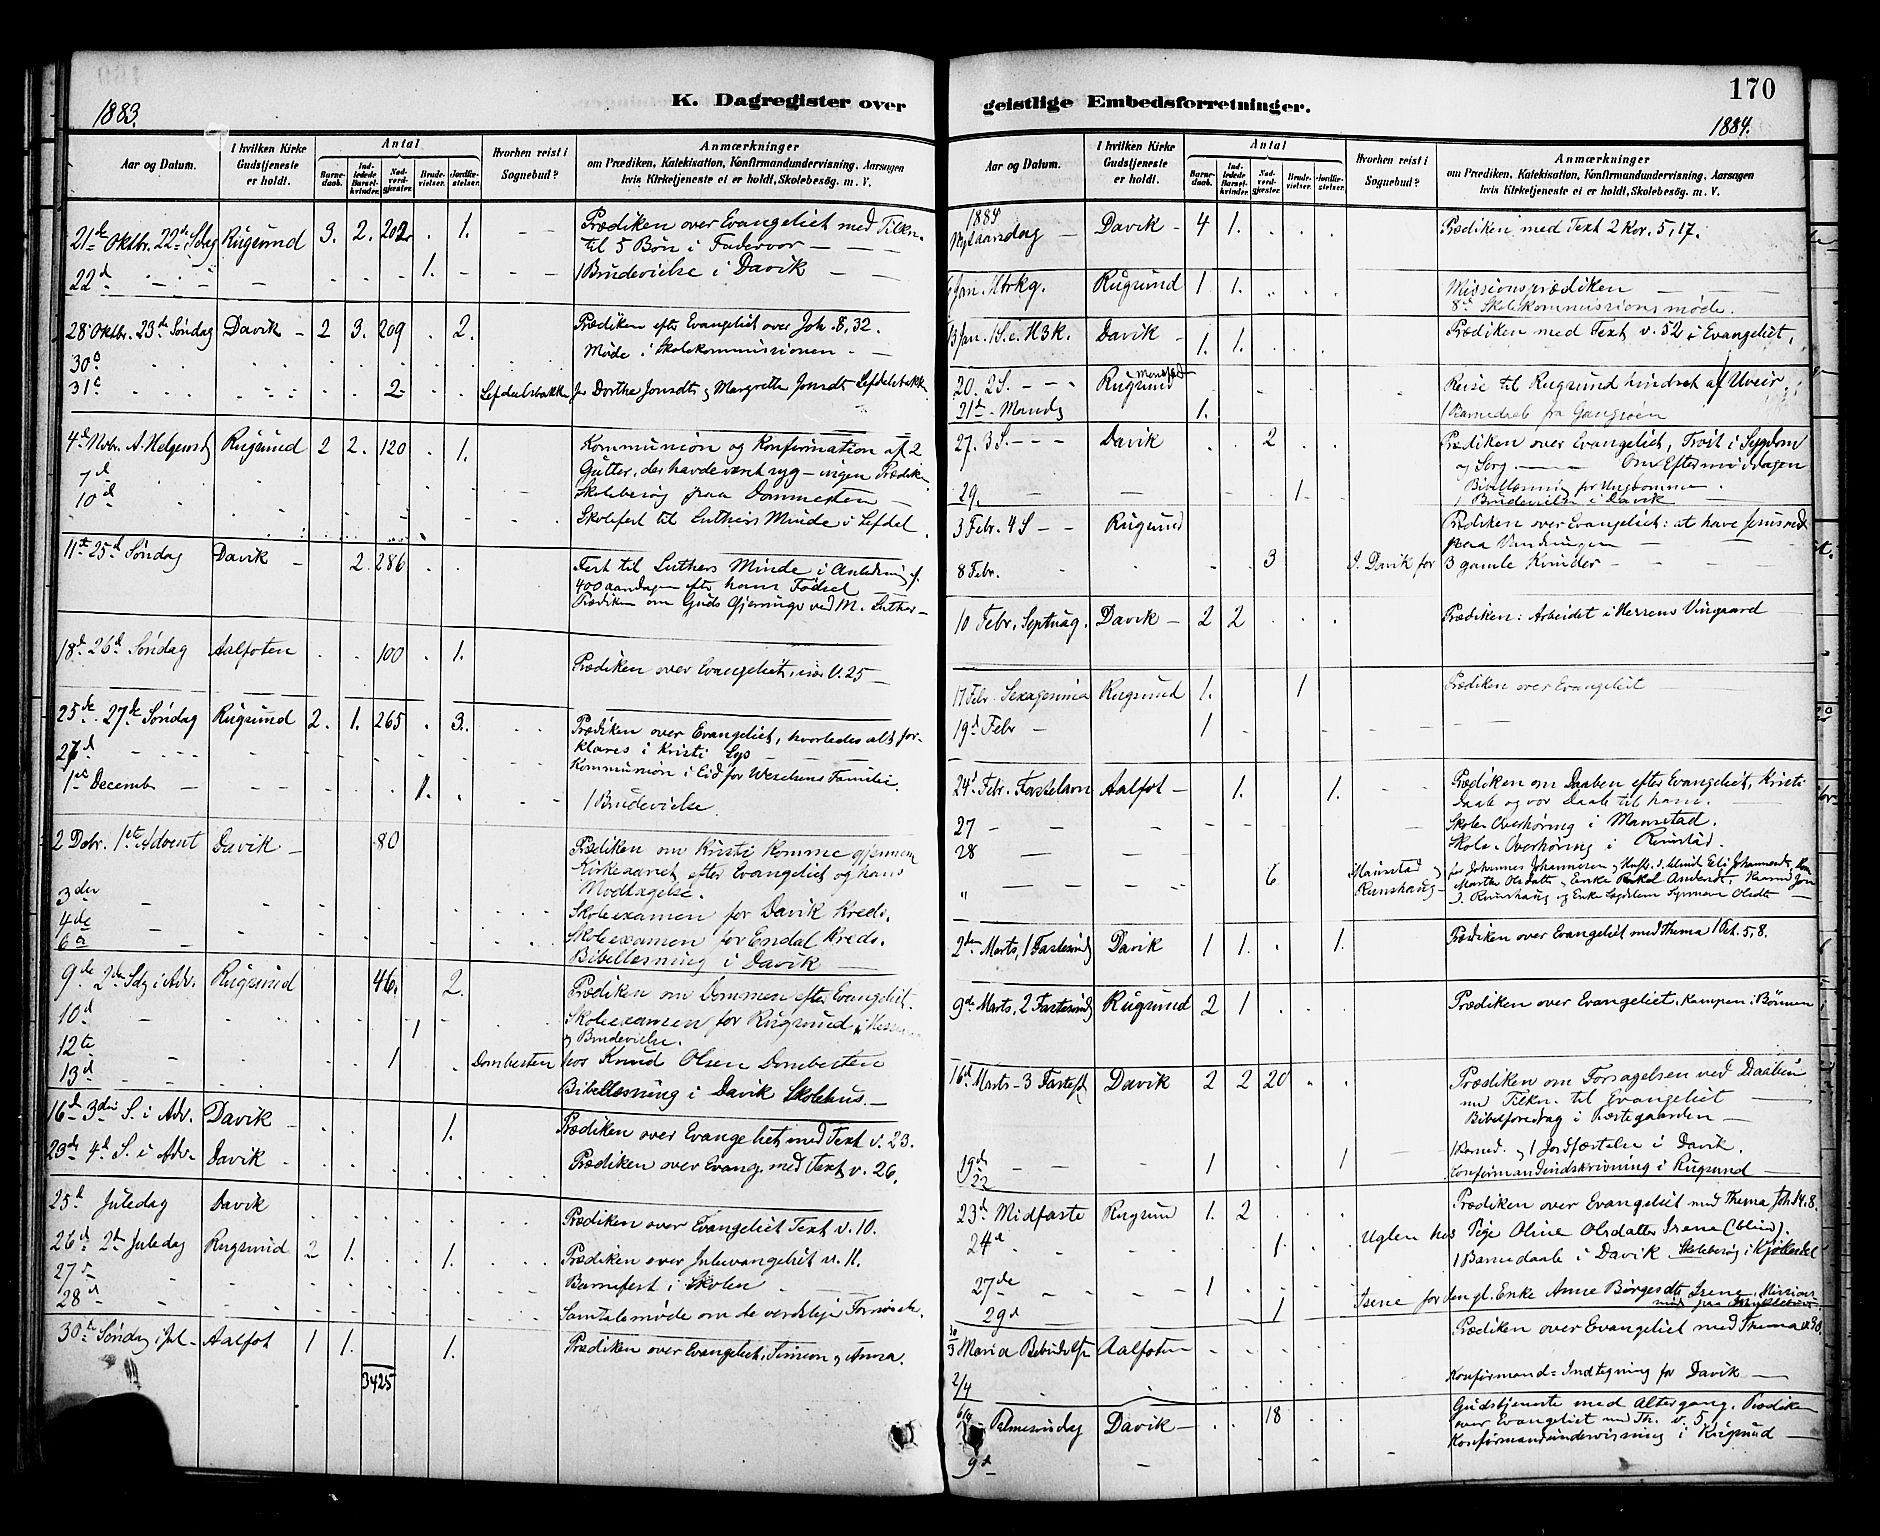 170
K. Dagregister over geistlige Embedsforretninger.
1883.
Aar og Datum. I hvilken Kirke Gudstjeneste er holdt. Antal Barnedaab. Indledede Barselkvinder. Nadverdgjester. Brudevielser. Jordfæstelser. Hvorhen reist i Sognebud? Anmærkninger om Prædiken, Katekisation, Konfirmandundervisning, Aarsagen hvis Kirketjeneste ei er holdt, Skolebesøg. m. V.
21de Oktbr. 22de Sdg Rugsund 3. 2. 202 . 1. Prædiken over Evangeliet med Tilkn.
til 5 Bøn i Fadervor
22d 1. 1 Brudevielse i Davik
28 Oktbr. 23de Søndag Davik 2 3. 209 . 2. Prædiken efter Evangeliet over Joh. 8, 32.
30. Møde i Skolekommissionen.
31. 2 Lefdalsbakke for Dorthe Jonsdt og Margrethe Jonsdt Lefdalsbakke
4d Nvbr. A. Helgensd Rugsund 2 2. 120 . 1. Kommunion og Konfirmation af 2
Gutter, der havde været syg – ingen Prædiken
7d Skolebesøg paa Dommesten
10d Skolefest til Luthers Minde i Lefdal
11te 25d Søndag Davik 2. 286 Fest til Luthers Minde i Anledning af
400 aarsdagen efter hans Fødsel
Prædiken om Guds Gjerninge ved M. Luther
18de 26d Søndag Aalfoten . . 100 . 1. Prædiken over Evangeliet, V. 25
25de 27de Søndag Rugsund 2. 1. 265 . 3. Prædiken over Evangeliet, hvorledes alt forklares
i Kristi Lys
27d Kommunion i Eid for Familie.
1ste Decembr 1. 1 Brudevielse
2 Dcbr. 1ste Advent Davik 80 Prædiken om Kristi Komme gjennem
Kirkeaaret efter Evangeliet og hans
Modtagelse.
3die Skoleexamen for Davik Kreds.
4de Skoleexamen for Endal Kreds.
6 Bibellæsning i Davik
9de 2den Sdg i Adv. Rugsund 46. 2. Prædiken om Dommen efter Evangeliet.
10d 1 Skoleexamen for Rugsund
og Brudevielse.
12te 1 Dombesten hos Knud Olsen Dombesten
13d Bibellæsning i Davik Skolehus.
16d 3die S. i Adv. Davik 1. Prædiken over Evangeliet med Text v. 23.
23de 4d S. i Adv. Davik Prædiken over Evang. med Text v. 26.
25d Juledag Davik Prædiken over Evangeliet Text v. 10.
26d 2d Juledag Rugsund 2 1. 1. Prædiken over Juleevangeliet v. 11.
27 Barnefest i Skolen
28d Samtalemøde om de verdslige
30te Søndag i Jul Aalfot 1 1. 1. Prædiken over Evangeliet, Simeon og Anna.
3425
1884.
Aar og Datum. I hvilken Kirke Gudstjeneste er holdt. Antal Barnedaab. Indledede Barselkvinder. Nadverdgjester. Brudevielser. Jordfæstelser. Hvorhen reist i Sognebud? Anmærkninger om Prædiken, Katekisation, Konfirmandundervisning, Aarsagen hvis Kirketjeneste ei er holdt, Skolebesøg. m. V.
1884
Nytaarsdag Davik 4 1. Prædiken med Text 2 Kor. 5, 17.
6 Jan. Rugsund 1 1. Missionsprædiken
8d Skolekommissionsmøde.
13 Jan. 1 S. e. H3k. Davik 1. 1. Prædiken med Text v. 52 i Evangeliet.
20. 2 S. Rugsund Reise til Rugsund hindret af Uveir.
21de Mandag 1. 1 Barnedaab fra Gangsøen
27. 3 S. Davik 2 Prædiken over Evangeliet, Trøst i Sygdom
og Sorg. Om Eftermiddagen
Bibellæsning for Ungdommen
29. 1 1 Brudevielse i Davik
3 Febr. 4 S Rugsund Prædiken over Evangeliet: at have Jesus med
paa Vandringen
8 Febr. 3 I Davik for 3 gamle Kvinder
10 Febr. Septuag. Davik 2 2 Prædiken: Arbeidet i Herrens Vingaard
17 Febr. Sexagesima Rugsund 1. 1 Prædiken over Evangeliet
19d Febr 1
24d Febr. Fastelavn Aalfot 1. 1. Prædiken om Daaben efter Evangeliet, Kristi
Daab og vor Daab til ham.
27 Skole-Overhøring i Maurstad.
28 Skole-Overhøring i Rimstad.
" 6 Maurstad og Rimshaug for Johannes Johannesen
Martha Olsdatter
I Rimshaug og Enke Olsdt
2den Marts, 1 Fastesøndg Davik 1 1. 1. Prædiken over Evangeliet med Thema 1 Pet. 5, 8.
9de Marts, 2 Fastesøndg Rugsund 2 1 Prædiken over Evangeliet, Kampen i Bønnen
16d Marts 3 Fastesd Davik 2 2 20 Prædiken om Forsagelsen ved Daaben
med Tilkn. til Evangeliet
Bibelforedrag i Præstegaarden
19de 1 1 1 Barned. og 1 Jordfæstelse i Davik.
22 Konfirmandindskrivning i Rugsund
23d Midfaste Rugsund 1. 2 Prædiken over Evangeliet med Thema Joh 14. 8.
24d 1. Uglen hos Pige Oline Olsdatter Isene (blind).
27de 1 1 Barnedaab i Davik Skolebesøg i
29d 1 Isene for den gl. Enke Anne Børgesdtr Isene. Missionsmøde
paa
30/3 Maria Bebudelse Aalfoten Prædiken over Evangeliet med Thema v. 38.
2/4 Konfirmand-Indtegning for Davik
6/4 Palmesøndag Davik 18 Gudstjeneste med Altergang. Prædiken
over Evangeliet med Th. v. 5.
9d Konfirmandundervisning i Rugsund